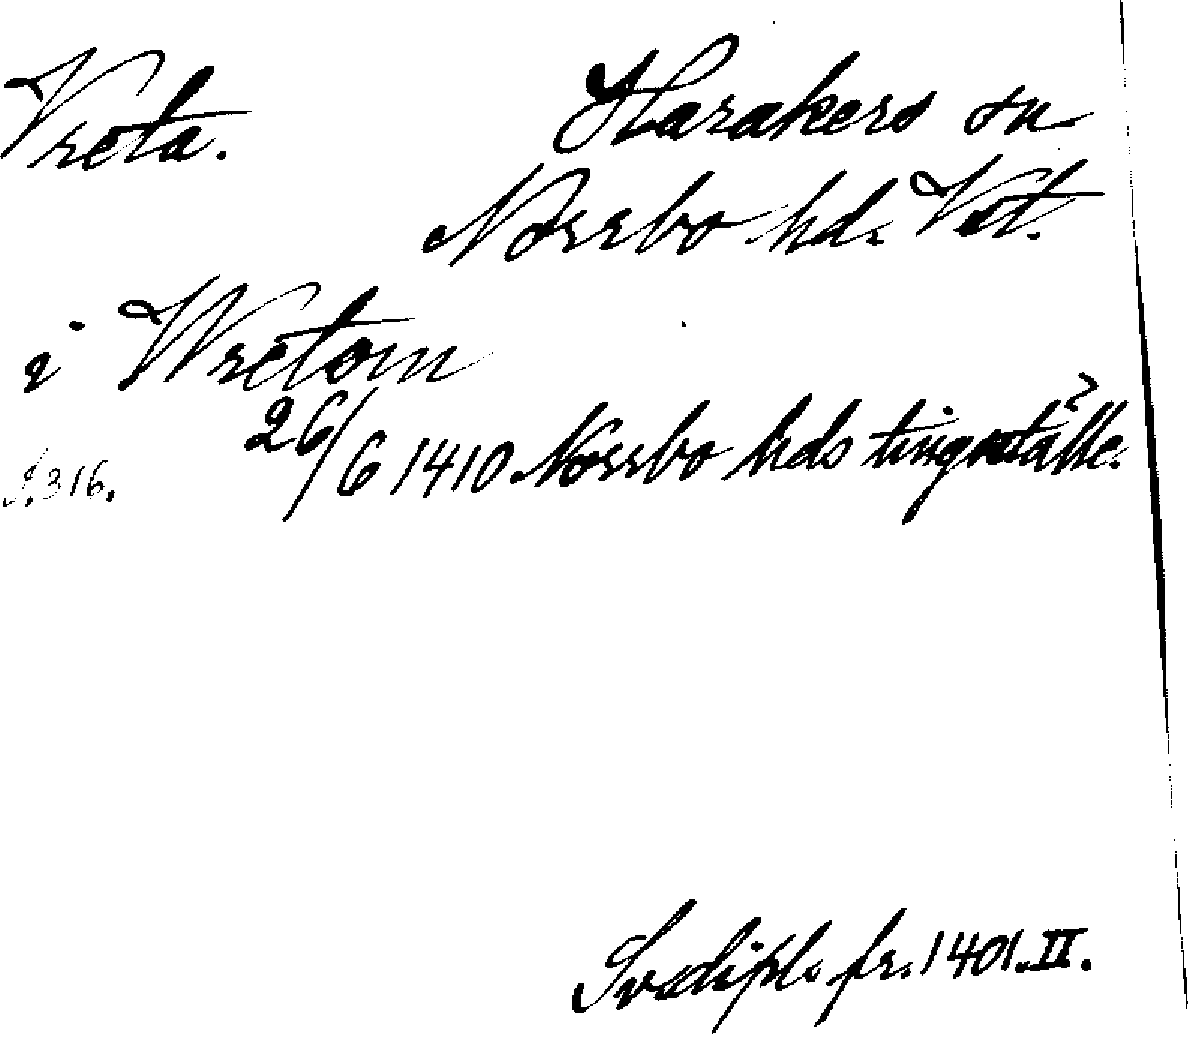 Vreta. Harakers sn
Norrbo hd. Vst.
i Wretom
26/6 1410 Norrbo hds tingställe?
S. 316.
Sv. dipl. fr. 1401. II.